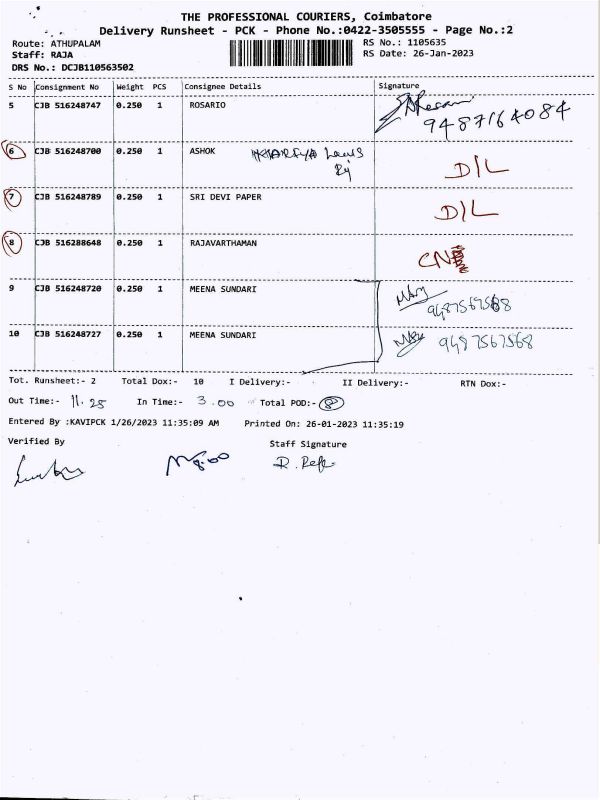 THE PROFESSIONAL COURIERS, Coimbatore
Delivery Runsheet - PCK - Phone No.:0422-3505555 - Page No.:2
Route: ATHUPALAM RS No.: 1105635
Staff: RAJA RS Date: 26-Jan-2023
DRS No.: DCJB110563502
S No Consignment No Weight PCS Consignee Details Signature
5 CJB 516248747 0.250 1 ROSARIO
9487164084
6 CJB 516248700 0.250 1 ASHOK D/L
7 CJB 516248789 0.250 1 SRI DEVI PAPER D/L
8 CJB 516288648 0.250 1 RAJAVARTHAMAN CN
9 CJB 516248720 0.250 1 MEENA SUNDARI
9487567568
10 CJB 516248727 0.250 1 MEENA SUNDARI 9487567568
Tot. Runsheet:- 2 Total Dox:- 10 I Delivery:- II Delivery:- RTN Dox:-
Out Time:- 11.25 In Time:- 3.00 Total POD:- 8
Entered By :KAVIPCK 1/26/2023 11:35:09 AM Printed On: 26-01-2023 11:35:19
Verified By Staff Signature